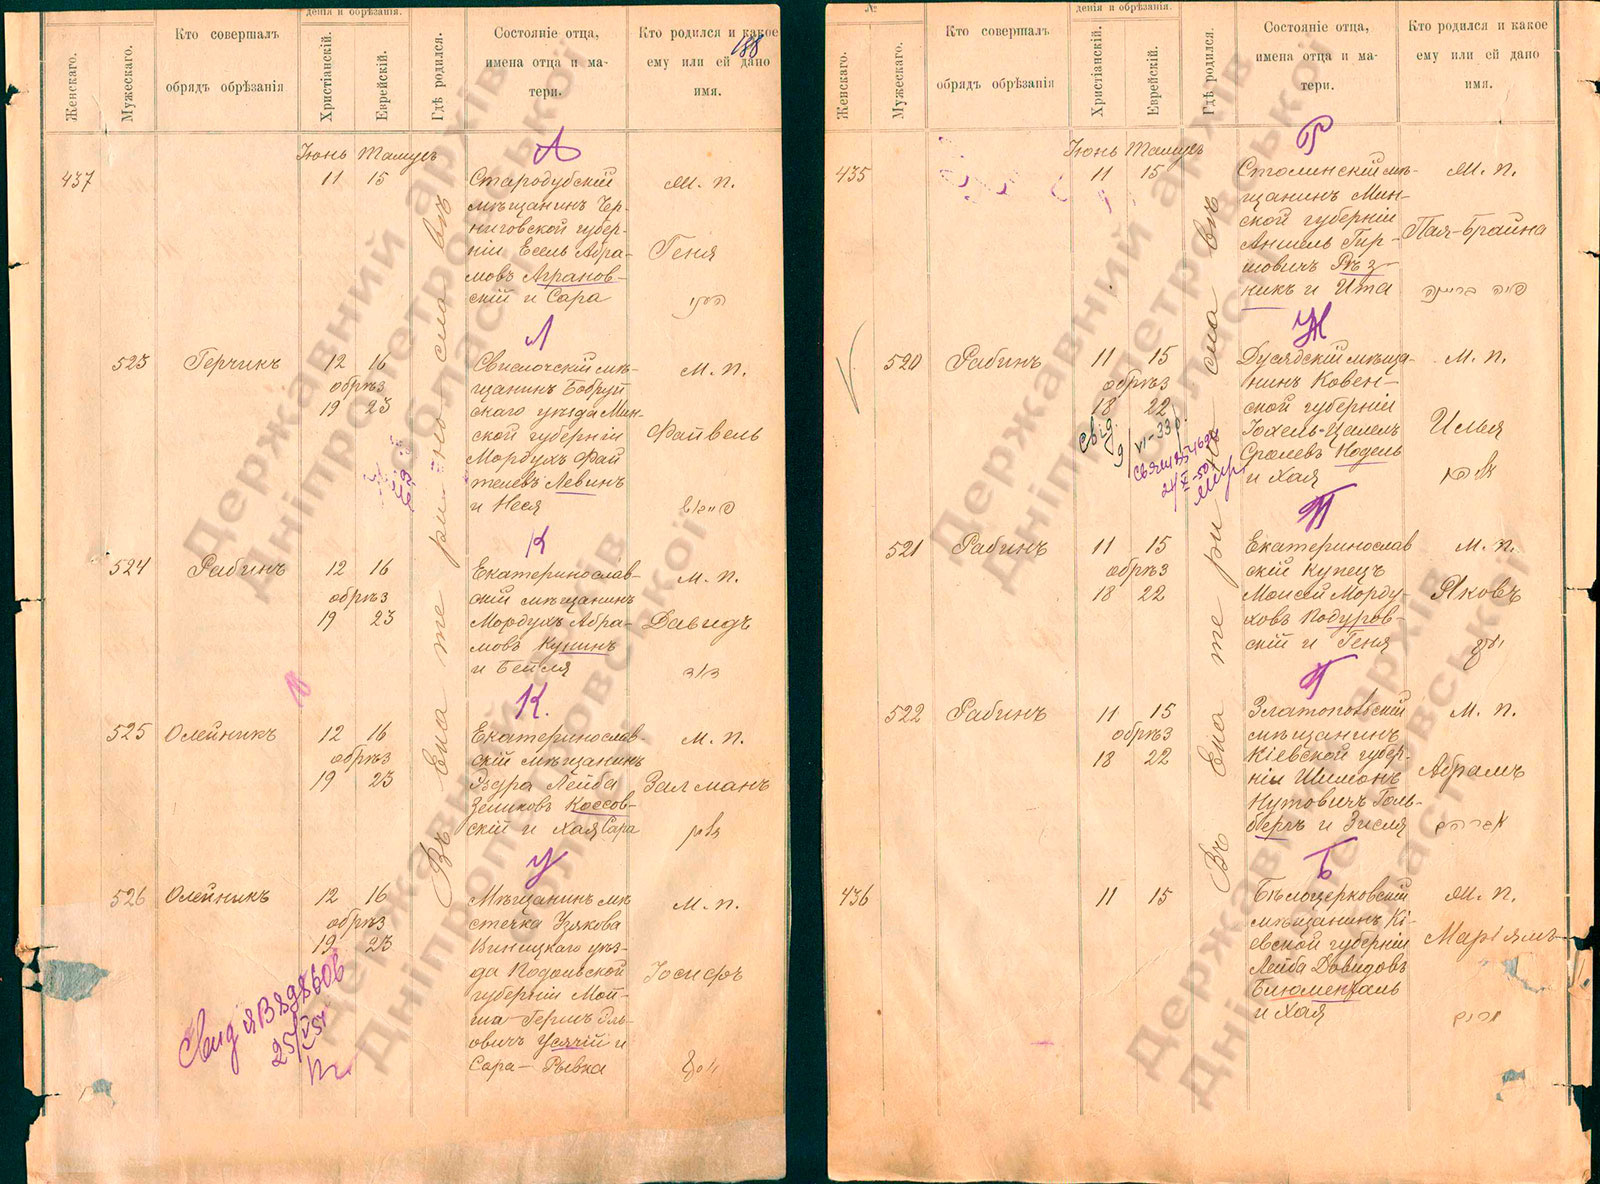 188
дения и обрѣзанія.
Женскаго.
Мужескаго.
Кто совершалъ
обрядъ обрѣзанія
Христіанскій.
Еврейскій.
Гдѣ родился.
Состояніе отца,
имена отца и ма-
тери.
Кто родился и какое
ему или ей дано
имя.
Іюнь Тамузъ
А
437
11 15
Стародубскій
мѣщанинъ Чер-
ниговской губер-
ніи Есель Абра-
мовъ Агранов-
скій и Сара
М. П.
Геня
Л
523
Герчикъ
12 16
обрѣз
19 23
Свислочскій мѣ-
щанинъ Бобруй
скаго уѣзда Мин-
ской губерніи
Мордухъ Фай
телевъ Левинъ
и Неся
М. П.
Файвель
К
524
Рабинъ
12 16
обрѣз
19 23
Екатеринослав-
скій мѣщанинъ
Мордухъ Абра-
мовъ Кунинъ
и Бейля
М. П.
Давидъ
דוד
К.
525
Олейникъ
12 16
обрѣз
19 23
Екатеринослав-
скій мѣщанинъ
Эздра Лейба
Зеликовъ Коссов-
скій и Хая Сара
М. П.
Залманъ
У
526
Олейникъ
12 16
обрѣз
19 23
Мѣщанинъ мѣ
стечка Узякова
Виницкаго уѣз-
да Подольской
губерніи Мой-
ша-Гершъ Эль-
овичъ Усячій и
Сара-Рывка
М. П.
Іосифъ
יוסף
Свид ЯВ 898606
25/V 54
Въ Екатеринославѣ
№
дения и обрѣзанія.
Женскаго.
Мужескаго.
Кто совершалъ
обрядъ обрѣзанія
Христіанскій.
Еврейскій.
Гдѣ родился.
Состояніе отца,
имена отца и ма-
тери.
Кто родился и какое
ему или ей дано
имя.
Іюнь Тамузъ
Р
435
11 15
Столинскій мѣ-
щанинъ Мин-
ской губерніи
Аншель Гир-
шовичъ Рѣз-
никъ и Ита
М. П.
Пая-Брайна
פיה בריינה
Н
520
Рабинъ
11 15
обрѣз
18 22
Свід.
9/VI-33р.
Дусядскій мѣща-
нинъ Ковен-
ской губерніи
Іохель-Цалель
Сролевъ Нодель
и Хая
М. П.
Илья
П
521
Рабинъ
11 15
обрѣз
18 22
Екатеринослав
скій Купецъ
Моисей Морду-
ховъ Подуров-
скій и Геня
М. П.
Яковъ
יעקב
Г
522
Рабинъ
11 15
обрѣз
18 22
Златопольскій
мѣщанинъ
Кіевской губер-
ніи Шимонъ
Нутовичъ Голь-
бергъ и Зисля
М. П.
Абрамъ
אברהם
Б
436
11 15
Бѣлоцерковскій
мѣщанинъ Кі-
евской губерніи
Лейба Довидовъ
Блюменталь
и Хая
М. П.
Маріямъ
מרים
Въ Екатеринославѣ
Державний архів
Дніпропетровської
області